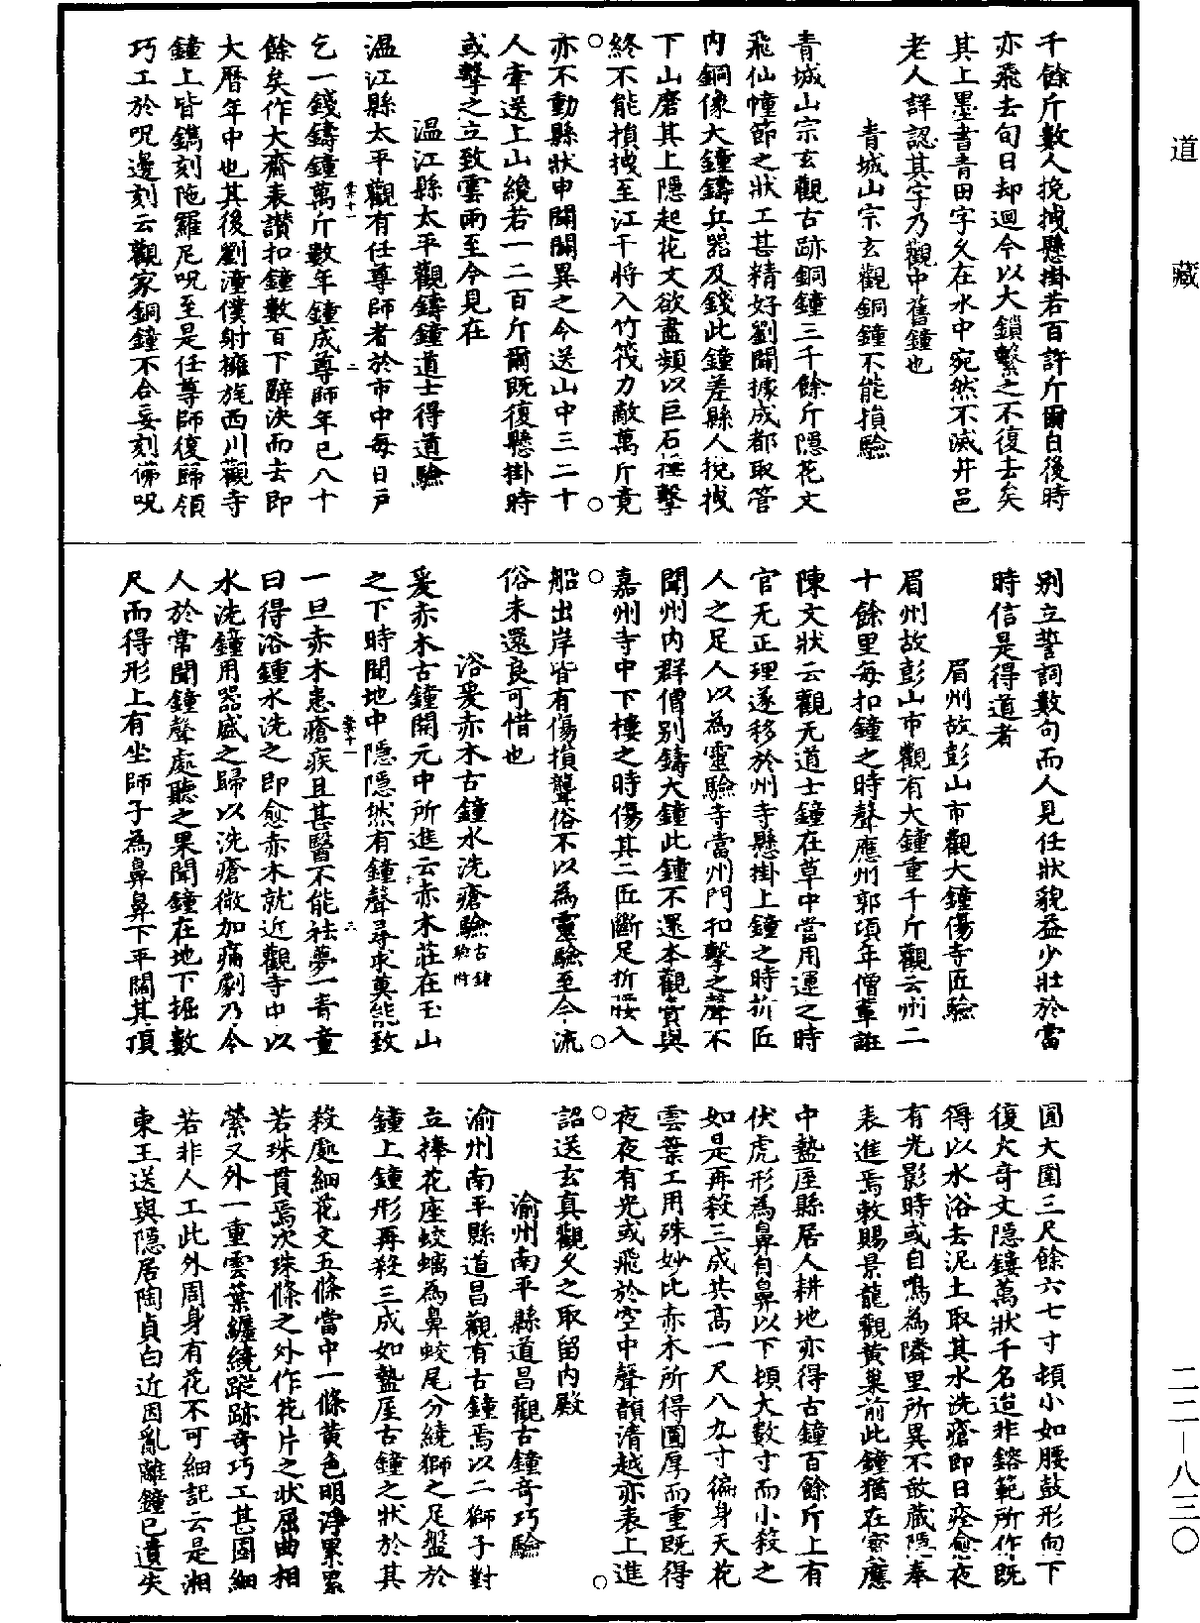 千餘斤數人挽拽懸掛若百許斤爾自後時
亦飛去旬日却迴今以大鎖繫之不復去矣
其上墨書青田字久在水中宛然不滅井邑
老人詳認其字乃觀中舊鐘也
青城山宗玄觀銅鐘不能損驗
青城山宗玄觀古跡銅鐘三千餘斤隱花文
飛仙幢節之狀工甚精好劉闢據成都取管
內銅像大鐘鑄兵器及錢此鐘差縣人挽拽
下山磨其上隱起花文欲盡頻以巨石搥擊
終不能損拽至江干將入竹筏力敵萬斤竟
亦不動縣狀申闢闢異之令送山中三二十
人牽送上山纔若一二百斤爾既復懸掛時
或擊之立致雲雨至今見在
溫江縣太平觀鑄鐘道士得道驗
溫江縣太平觀有任尊師者於市中每日戶
乞一錢鑄鐘萬斤數年鐘成尊師年已八十
餘矣作大齋表讚扣鐘數百下辭決而去即
大曆年中也其後劉潼僕射擁旄西川觀寺
鐘上皆鐫刻陁羅尼呪至是任尊師復歸領
巧工於呪邊刻云觀家銅鐘不合妄刻佛呪
別立誓詞數句而人見任狀貌益少壯於當
時信是得道者
眉州故彭山市觀大鐘傷寺匠驗
眉州故彭山市觀有大鐘重千斤觀云州二
十餘里每扣鐘之時聲應州郭項年僧輩誑
陳文狀云觀无道士鐘在草中當用運之時
官无正理遂移於州寺懸掛上鐘之時折匠
人之足人以為靈驗寺當州門扣擊之聲不
聞州內群僧別鑄大鐘此鐘不還本觀賣與
嘉州寺中下樓之時傷其二匠斷足折腰入
船出岸皆有傷損聾俗不以為靈驗至今流
俗未還良可惜也
浴爰赤木古鐘水洗瘡驗古鐘驗附
爰赤木古鐘開元中所進云赤木莊在玉山
之下時聞地中隱隱然有鐘聲尋求莫能致
一旦赤木患瘡疾且甚醫不能祛夢一青童
曰得浴鐘水洗之即愈赤木就近觀寺中以
水洗鐘用器盛之歸以洗瘡微加痛劇乃令
人於常聞鐘聲處聽之果聞鐘在地下掘數
尺而得形上有坐師子為鼻鼻下平闊其頂
圓大圍三尺餘六七寸頓小如腰鼓形向下
復大奇文隱鏤萬狀千名迨非鎔範所作既
得以水浴去泥土取其水洗瘡即日痊愈夜
有光影時或自鳴為隣里所異不敢藏隱奉
表進焉敕賜景龍觀黃巢前此鐘猶在寶應
中盩厔縣居人耕地亦得古鐘百餘斤上有
伏虎形為鼻自鼻以下頓大數寸而小殺之
如是再殺三成共高一尺八九寸徧身天花
雲葉工用殊妙比赤木所得圓厚而重既得
夜夜有光或飛於空中聲韻清越亦表上進
詔送玄真觀久之取留內殿
渝州南平縣道昌觀古鐘奇巧驗
渝州南平縣道昌觀有古鐘焉以二獅子對
立捧花座蛟螭為鼻蛟尾分繞獅之足盤於
鐘上鐘形再殺三成如盩厔古鐘之狀於其
殺處細花文五條當中一條黃色明淨累累
若珠貫焉次珠條之外作花片之狀屈曲相
縈又外一重雲葉纏繞蹤跡奇巧工甚固細
若非人工此外周身有花不可細記云是湘
東王送與隱居陶貞白近因亂離鐘已遺失
道藏
二二－八三〇